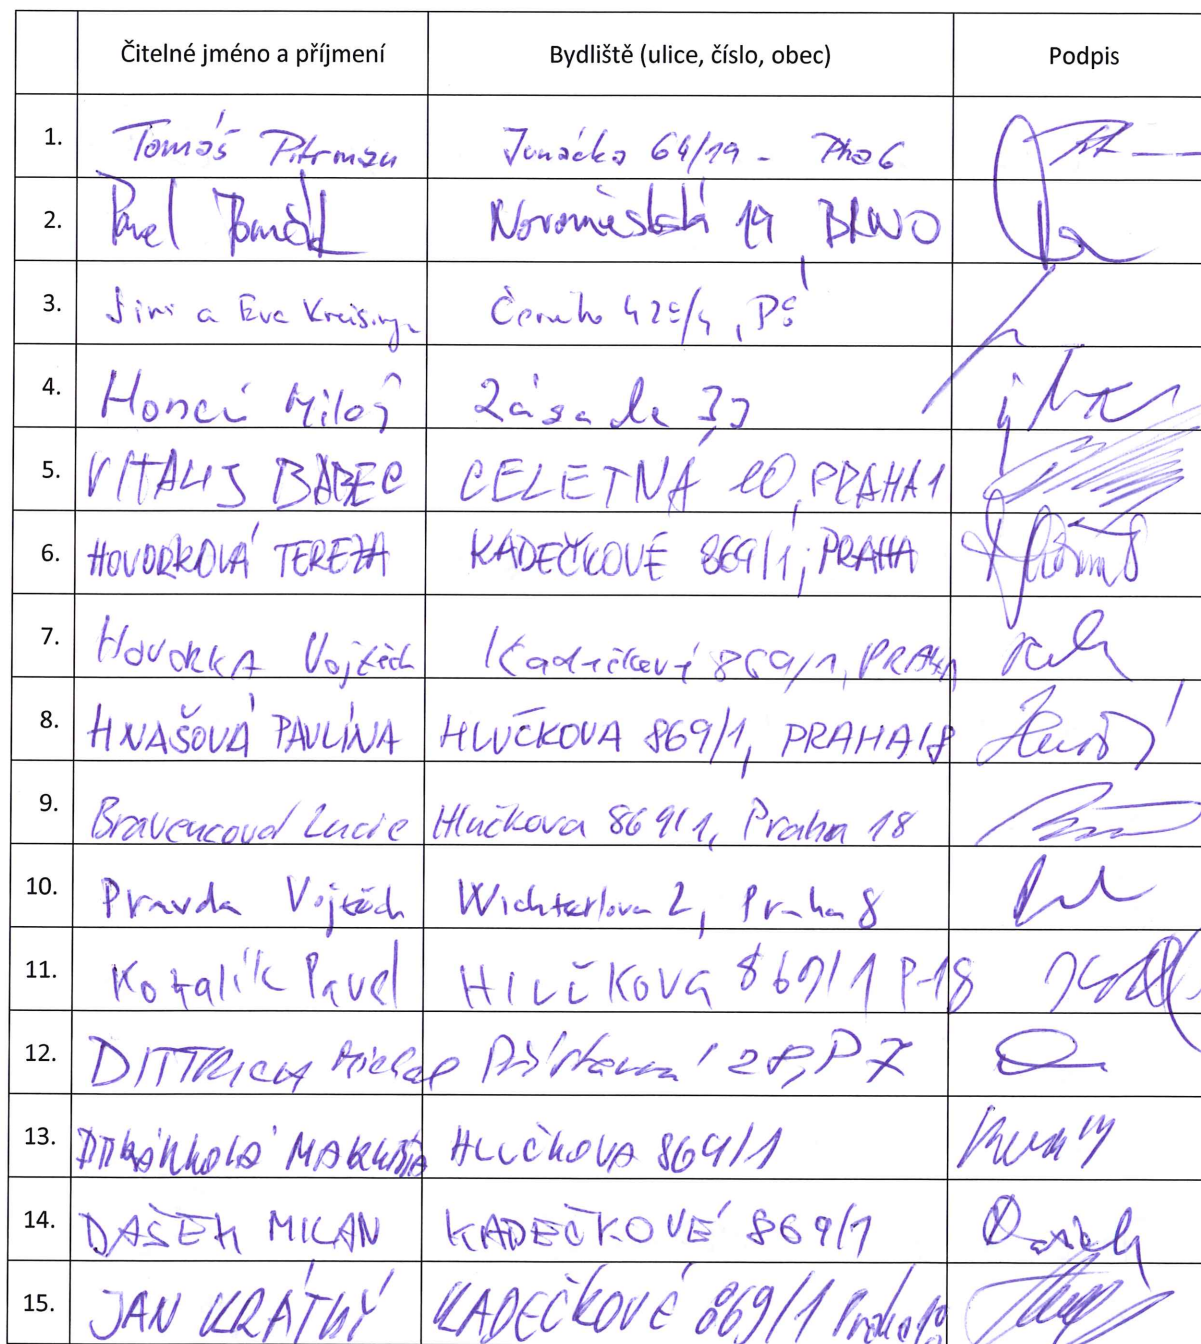 Čitelné jméno a příjmení Bydliště (ulice, číslo, obec) Podpis
1. Tomáš Pitrman Junácká 64/19 - Pha6
2. Pavel Novoměstská 19 BRNO
3. Jiří a Eva
4. Honců Miloš Zásada
5. VITALIJ BABEC CELETNÁ 10, PRAHA 1
6. HOVORKOVÁ TEREZA KADEČKOVÉ 869/1, PRAHA
7. HOVORKA Vojtěch Kadečkové 869/1, PRAHA
8. HNAŠOVÁ PAVLÍNA HLUČKOVA 869/1, PRAHA 18
9. Bravencová Lucie Hlučkova 869/1, Praha 18
10. Pravda Vojtěch Wichterlova 2, Praha 8
11. Kotalík Pavel HLUČKOVA 869/1 P-18
12. DITTRICH Michal Přístavní 28, P7
13. MARKÉTA HLUČKOVA 869/1
14. DAŠEK MILAN KADEČKOVÉ 869/1
15. JAN KRÁTKÝ KADEČKOVÉ 869/1 Praha 18